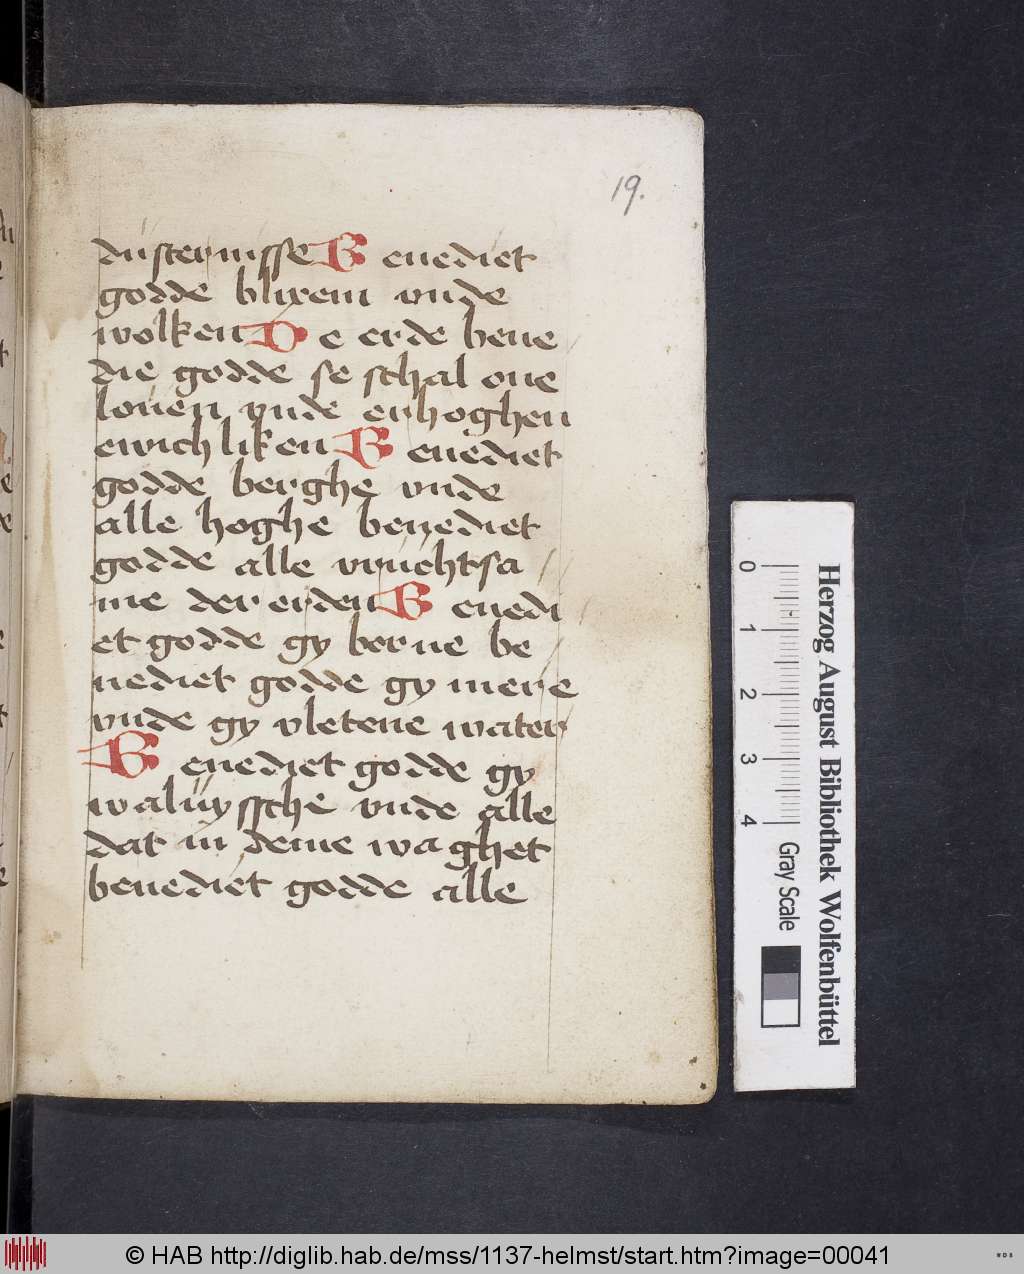 19.
dusternisse Benediet
godde blixem vnde
wolken De erde bene
die godde se schal one
louen vnde erhoghen
ewichliken Benediet
godde berghe vnde
alle hoghe benediet
godde alle vruchtsa
me der erden Benedi
et godde gy borne be
nediet godde gy mere
vnde gy vletene water
Benediet godde gy
waluyssche vnde alle
dat in deme waghet
benediet godde alle
Herzog August Bibliothek Wolfenbüttel
0 1 2 3 4 Gray Scale
© HAB http://diglib.hab.de/mss/1137-helmst/start.htm?image=00041